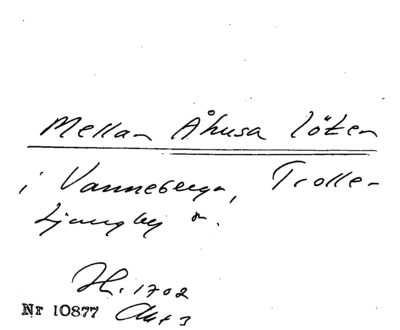 Mellan Åhusa löten
i Vanneberga, Trolle-
Ljungby sn.
H. 1702
Nr 10877 Akt 3